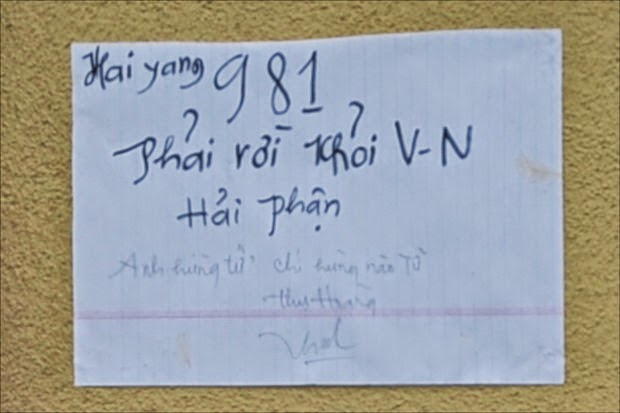 Hai yang 981
Phải rời khỏi V-N
Hải phận
Anh hùng tử, chí hùng nào tử